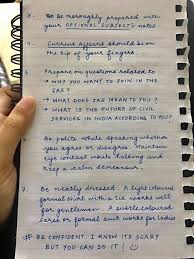 3. Be thoroughly prepared with
your OPTIONAL SUBJECT's notes
4. Current Affairs should be on
the tip of your fingers
5. Prepare on questions related to
→ WHY YOU WANT TO JOIN IN THE
IAS?
→ WHAT DOES IAS MEANS TO YOU?
→ WHAT IS THE FUTURE OF CIVIL
SERVICES IN INDIA ACCORDING TO YOU?
Be polite while speaking whether
you agree or disagree. Maintain
eye contact while talking and
keep a calm demeanour.
7. Be neatly dressed. A light coloured
formal shirt with a tie works well
for gentlemen. A subtle coloured
saree or formal suit works for ladies
# BE CONFIDENT. I KNOW ITS SCARY
BUT YOU CAN DO IT!